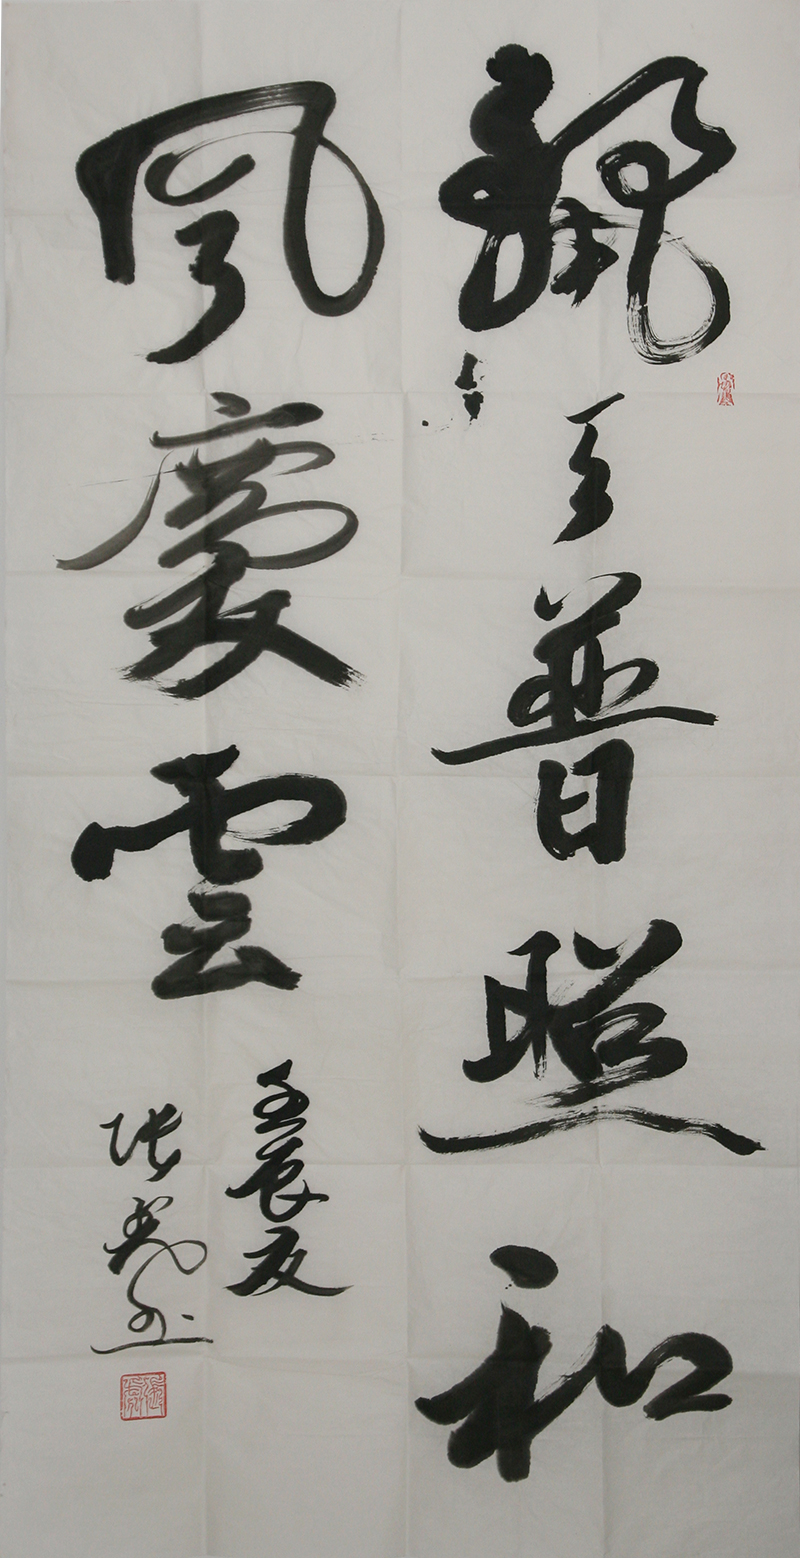 天普照和
風慶雲
壬辰夏
张